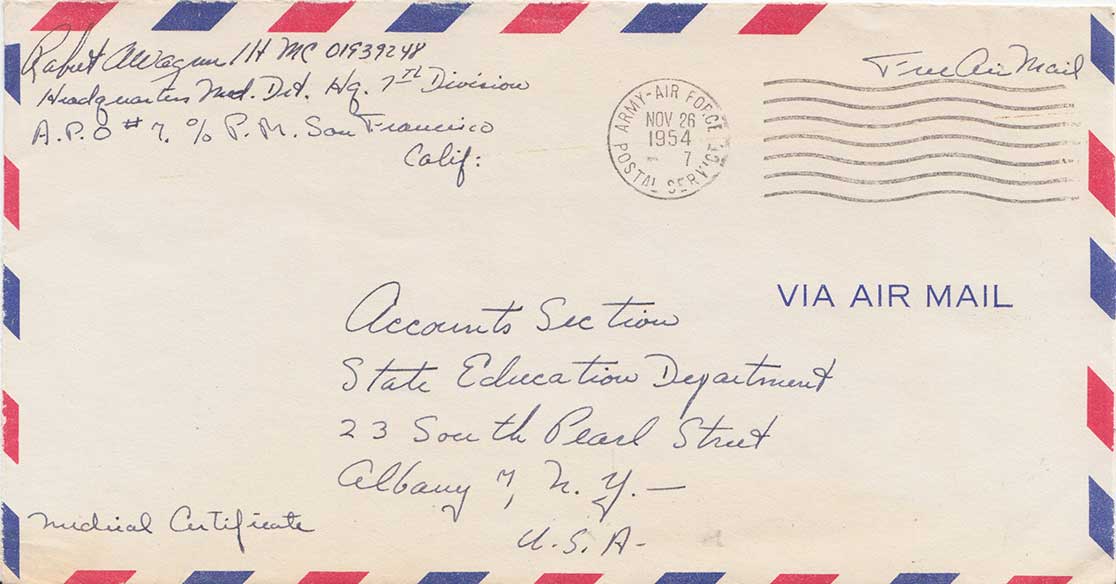 Robert A Wagner 1H MC 01939248
Headquarters Med. Det. Hq. 7TH Division
A.P.O #7, % P.M. San Francisco
Calif:
Free Air Mail
ARMY-AIR FORCE
NOV 26
1954
7
POSTAL SERVICE
VIA AIR MAIL
Accounts Section
State Education Department
23 South Pearl Street
Albany 7, N.Y. —
U.S.A-
Medical Certificate